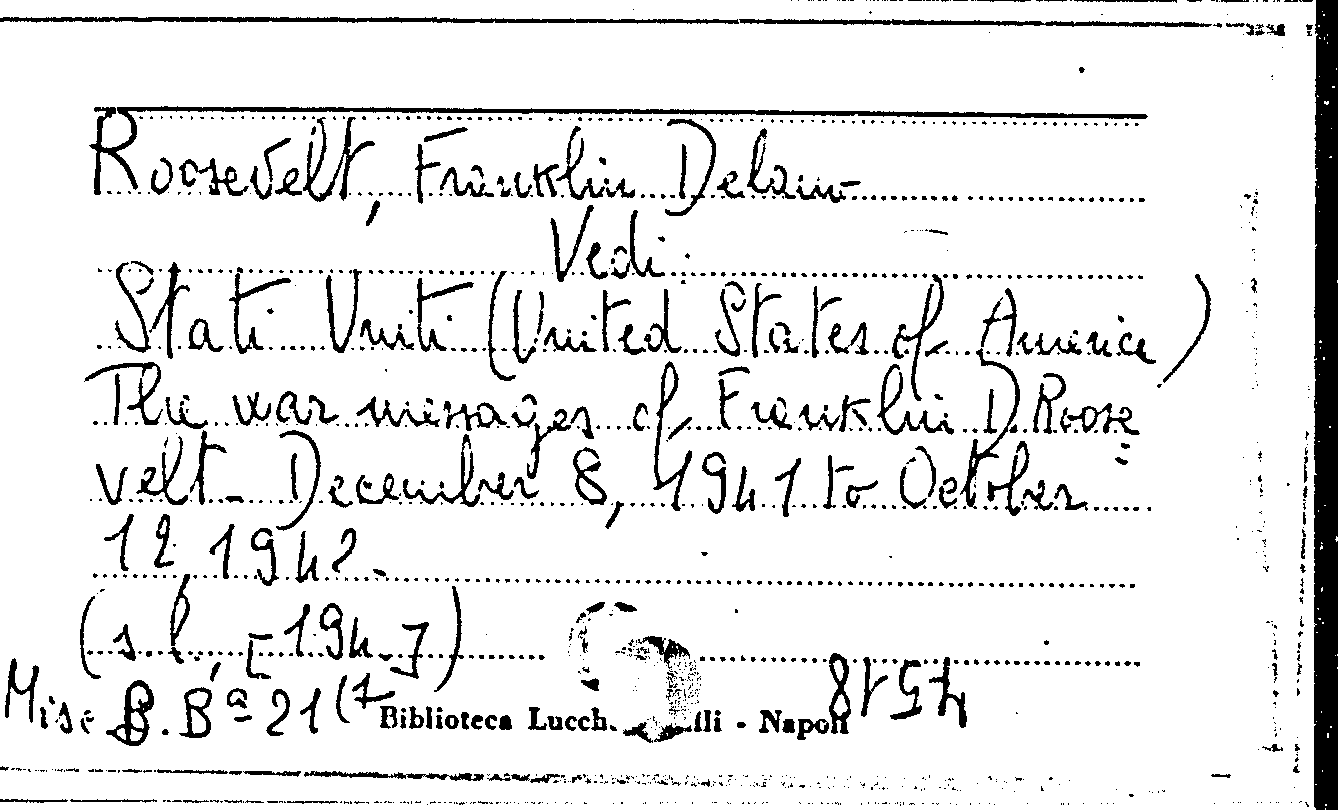 Roosevelt, Franklin Delano
Vedi:
Stati Uniti (United States of America)
The war messages of Franklin D. Roose=
velt - December 8, 1941 to October
12, 1942.
(s. l., [194-])
Misc B. Bª 21 (7
Biblioteca Lucch lli - Napoli